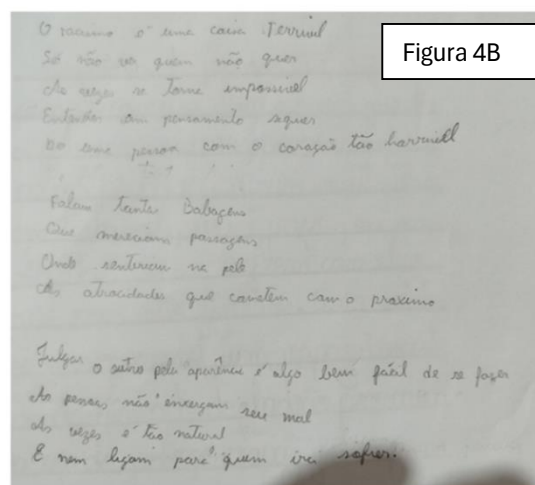 Figura 4B
O racismo é uma coisa Terrivel
Só não ver quem não quer
As vezes se torna impossivel
Entender um pensamento sequer
De uma pessoa com o coração tão horrivell
Falam tanta Babagens
Que mereciam passagens
Onde sentiriam na pele
As atrocidades que cometem com o proximo
Julgar o outro pela aparência é algo bem fácil de se fazer
As pessoas não enxergam seu mal
As vezes é tão natural
E nem ligam para quem irá sofrer.